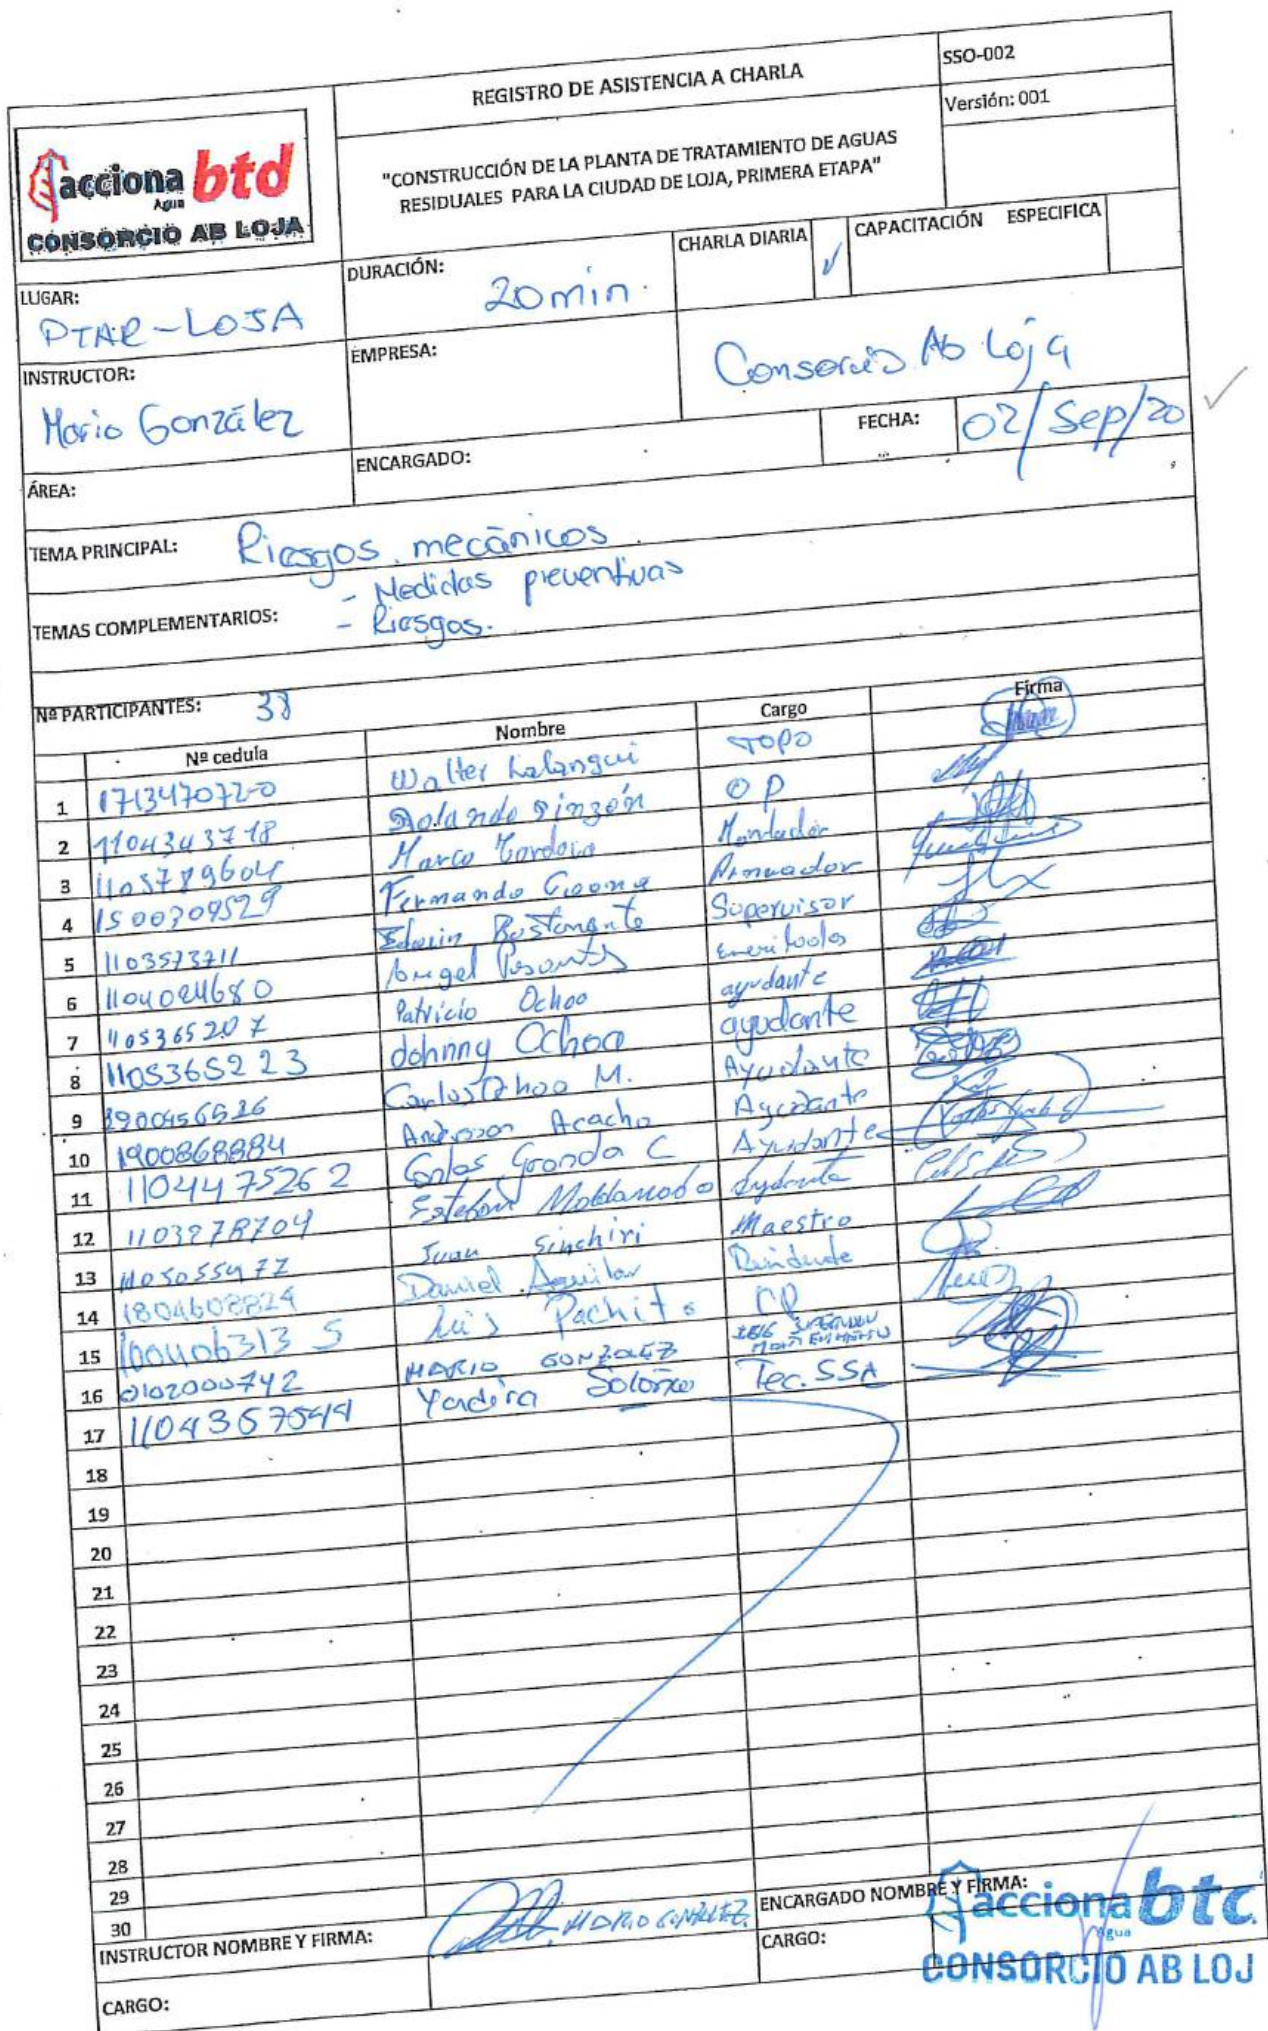 REGISTRO DE ASISTENCIA A CHARLA
SSO-002
Versión: 001
acciona btd
Agua
CONSORCIO AB LOJA
"CONSTRUCCIÓN DE LA PLANTA DE TRATAMIENTO DE AGUAS
RESIDUALES PARA LA CIUDAD DE LOJA, PRIMERA ETAPA"
LUGAR:
PTAR-LOJA
DURACIÓN:
20 min.
CHARLA DIARIA
CAPACITACIÓN ESPECIFICA
INSTRUCTOR:
Mario González
EMPRESA:
Consorcio Ab Loja
ÁREA:
ENCARGADO:
FECHA:
02/Sep/20
TEMA PRINCIPAL: Riesgos mecánicos
TEMAS COMPLEMENTARIOS:
- Medidas preventivas
- Riesgos.
Nº PARTICIPANTES: 38
Nº cedula Nombre Cargo Firma
1 171347072-0 Walter Lalangui TOPO
2 1104343718 Rolando Pinzón OP
3 1105789604 Marco Cordova
4 1500709529 Fernando
5 1103573711 Edwin Bustamante Supervisor
6 Angel
7 1105365207 Patricio Ochoa ayudante
8 1105365223 Johnny Ochoa ayudante
9 Carlos Ochoa M. Ayudante
10 1900868884 Anderson Acacho Ayudante
11 1104475262 Carlos Granda C Ayudante
12 1103278704 Esteban Maldonado Ayudante
13 1105055477 Juan Sinchiri Maestro
14 1804608824 Daniel Aguilar Residente
15 100406313 5 Luis Pachito
16 0102000742 MARIO GONZALEZ
17 1104367544 Yadira Solorzo Tec. SSA
18
19
20
21
22
23
24
25
26
27
28
29
30
INSTRUCTOR NOMBRE Y FIRMA: MARIO GONZALEZ.
ENCARGADO NOMBRE Y FIRMA:
acciona btd
Agua
CONSORCIO AB LOJ
CARGO:
CARGO: